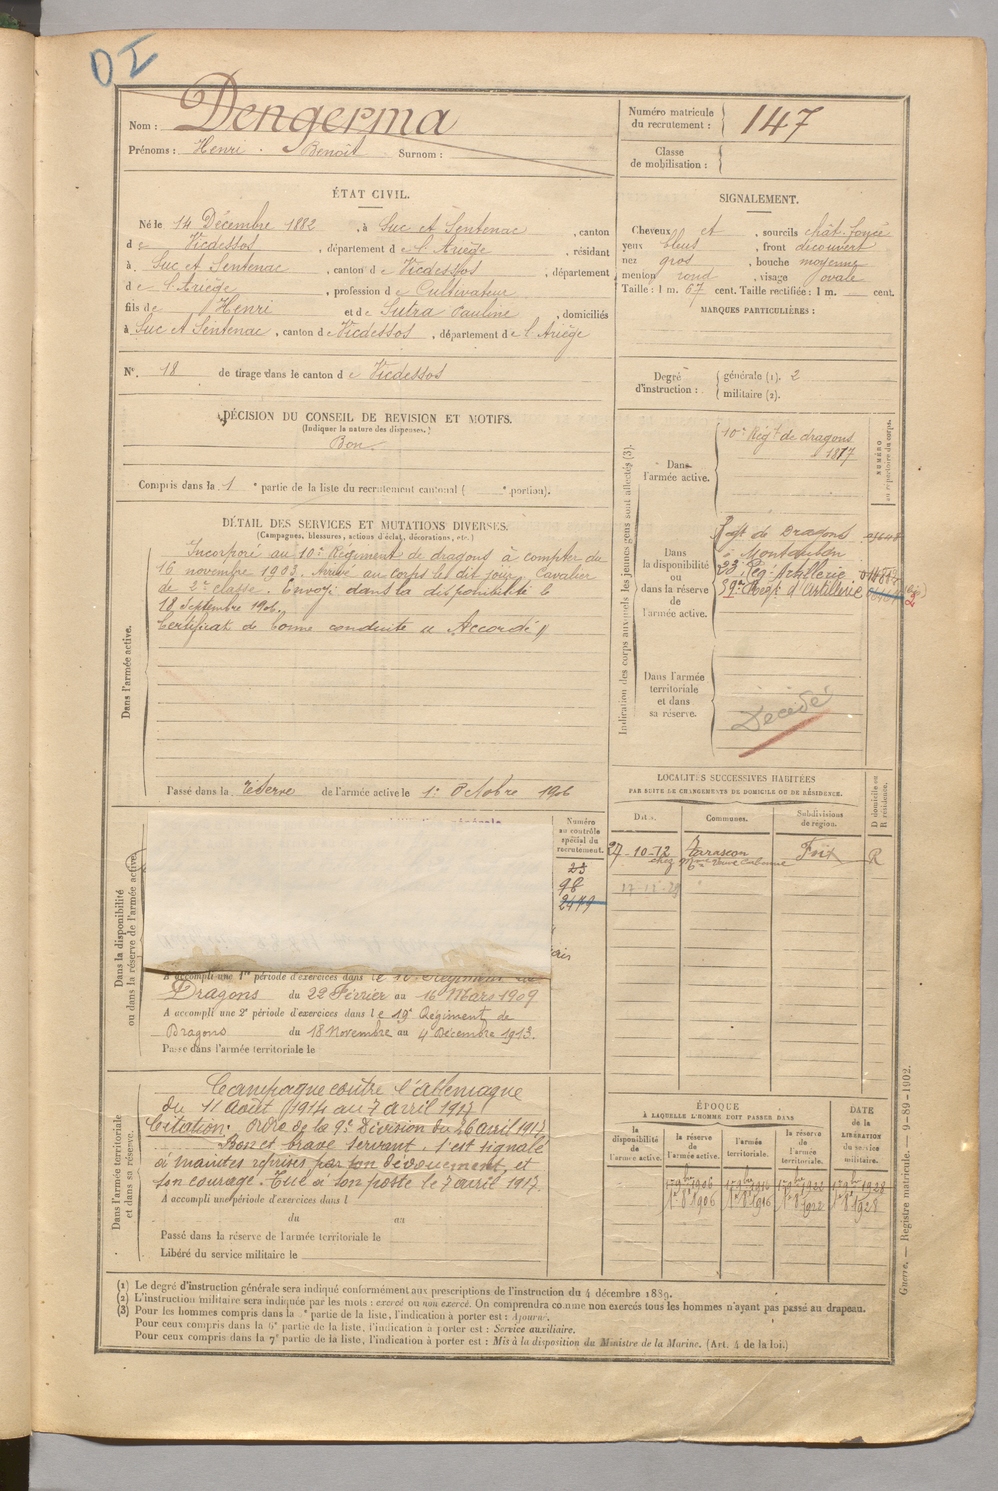 DI
Nom : Dengerma
Prénoms : Henri . Benoît Surnom :
Numéro matricule du recrutement : 147
Classe de mobilisation :
ÉTAT CIVIL.
Né le 14 Décembre 1882, à Suc et Sentenac, canton
de Vicdessos, département de l'Ariège, résidant
à Suc et Sentenac, canton de Vicdessos, département
de l'Ariège, profession de Cultivateur
fils de Henri et de Sutra Pauline, domiciliés
à Suc et Sentenac, canton de Vicdessos, département de l'Ariège
N° 18 de tirage dans le canton de Vicdessos
SIGNALEMENT.
Cheveux et, sourcils chât. foncé
yeux bleus, front découvert
nez gros, bouche moyenne
menton rond, visage ovale
Taille : 1 m. 67 cent. Taille rectifiée : 1 m. cent.
MARQUES PARTICULIÈRES :
Degré d'instruction : générale (1). 2
militaire (2).
DÉCISION DU CONSEIL DE REVISION ET MOTIFS.
(Indiquer la nature des dispenses.)
Bon.
Compris dans la 1e partie de la liste du recrutement cantonal ( e portion).
DÉTAIL DES SERVICES ET MUTATIONS DIVERSES.
(Campagnes, blessures, actions d'éclat, décorations, etc.)
Dans l'armée active.
Incorporé au 10e Régiment de dragons à compter du
16 novembre 1903. Arrivé au corps le dit jour, Cavalier
de 2e classe. Envoyé dans la disponibilité le
18 Septembre 1906.
Certificat de bonne conduite "Accordé"
Passé dans la réserve de l'armée active le 1er Octobre 1906
Indication des corps auxquels les jeunes gens sont affectés (3).
NUMÉRO au répertoire du corps.
Dans l'armée active.
10e Régt de dragons
1817
Dans la disponibilité ou dans la réserve de l'armée active.
Régt de Dragons
à Montauban
23e Rég. Artillerie
Régt d'Artillerie
Dans l'armée territoriale et dans sa réserve.
Décédé
LOCALITÉS SUCCESSIVES HABITÉES
PAR SUITE DE CHANGEMENTS DE DOMICILE OU DE RÉSIDENCE.
D domicile ou R résidence.
Dates. Communes. Subdivisions de région.
27-10-12 Tarascon Foix R
chez Mme Vve
Dans la disponibilité ou dans la réserve de l'armée active.
Numéro au contrôle spécial du recrutement.
23
98
2479
A accompli une 1re période d'exercices dans le 10e Régiment de
Dragons du 22 Février au 16 Mars 1909
A accompli une 2e période d'exercices dans le 19e Régiment de
Dragons du 18 Novembre au 4 Décembre 1913.
Passé dans l'armée territoriale le
Dans l'armée territoriale et dans sa réserve.
Campagne contre l'Allemagne
du 11 Août 1914 au 7 avril 1917
Citation. Ordre de la 9e Division du 26 avril 1917
Bon et brave servant. S'est signalé
à maintes reprises par son dévouement et
son courage. Tué à son poste le 7 avril 1917.
A accompli une période d'exercices dans l
du au
Passé dans la réserve de l'armée territoriale le
Libéré du service militaire le
ÉPOQUE
À LAQUELLE L'HOMME DOIT PASSER DANS
la disponibilité de l'armée active. la réserve de l'armée active. l'armée territoriale. la réserve de l'armée territoriale. DATE de la LIBÉRATION du service militaire.
1er 9bre 1906 1er 9bre 1916 1er 9bre 1922 1er 9bre 1928
1er 8bre 1906 1er 8bre 1916 1er 8bre 1922 1er 8bre 1928
Guerre. — Registre matricule. — 9-89-1902.
(1) Le degré d'instruction générale sera indiqué conformément aux prescriptions de l'instruction du 4 décembre 1889.
(2) L'instruction militaire sera indiquée par les mots : exercé ou non exercé. On comprendra comme non exercés tous les hommes n'ayant pas passé au drapeau.
(3) Pour les hommes compris dans la e partie de la liste, l'indication à porter est : Ajourné.
Pour ceux compris dans la 6e partie de la liste, l'indication à porter est : Service auxiliaire.
Pour ceux compris dans la 7e partie de la liste, l'indication à porter est : Mis à la disposition du Ministre de la Marine. (Art. 4 de la loi.)